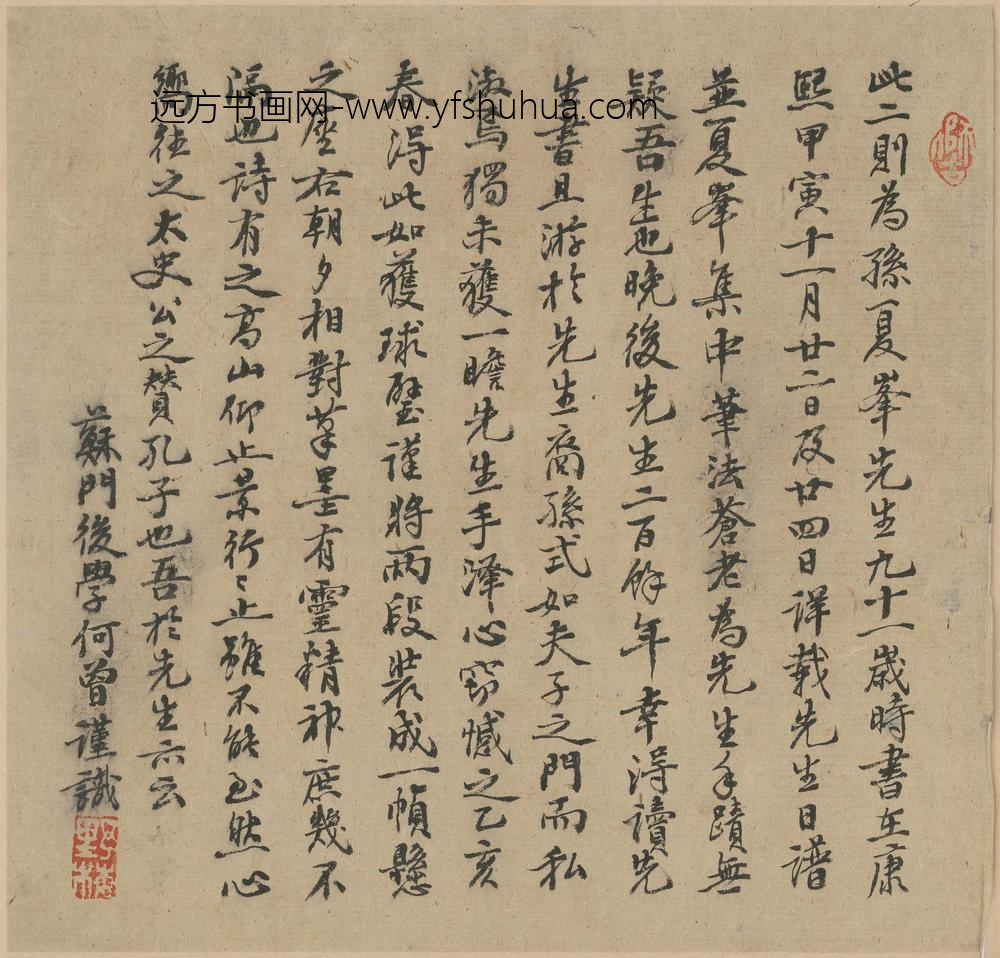 此二則為孫夏峯先生九十一歲時書在康
熙甲寅十一月廿二日及廿四日詳載先生日譜
並夏峯集中筆法蒼老為先生手蹟無
疑吾生也晚後先生二百餘年幸得讀先
生書且游於先生裔孫式如夫子之門而私
淑焉獨未獲一瞻先生手澤心竊憾之乙亥
春得此如獲球璧謹將兩段裝成一幀懸
之座右朝夕相對筆墨有靈精神庶幾不
隔也詩有之高山仰止景行〻止雖不能至然心
嚮往之太史公之贊孔子也吾於先生亦云
蘇門後學何曾謹識
远方书画网-www.yfshuhua.com